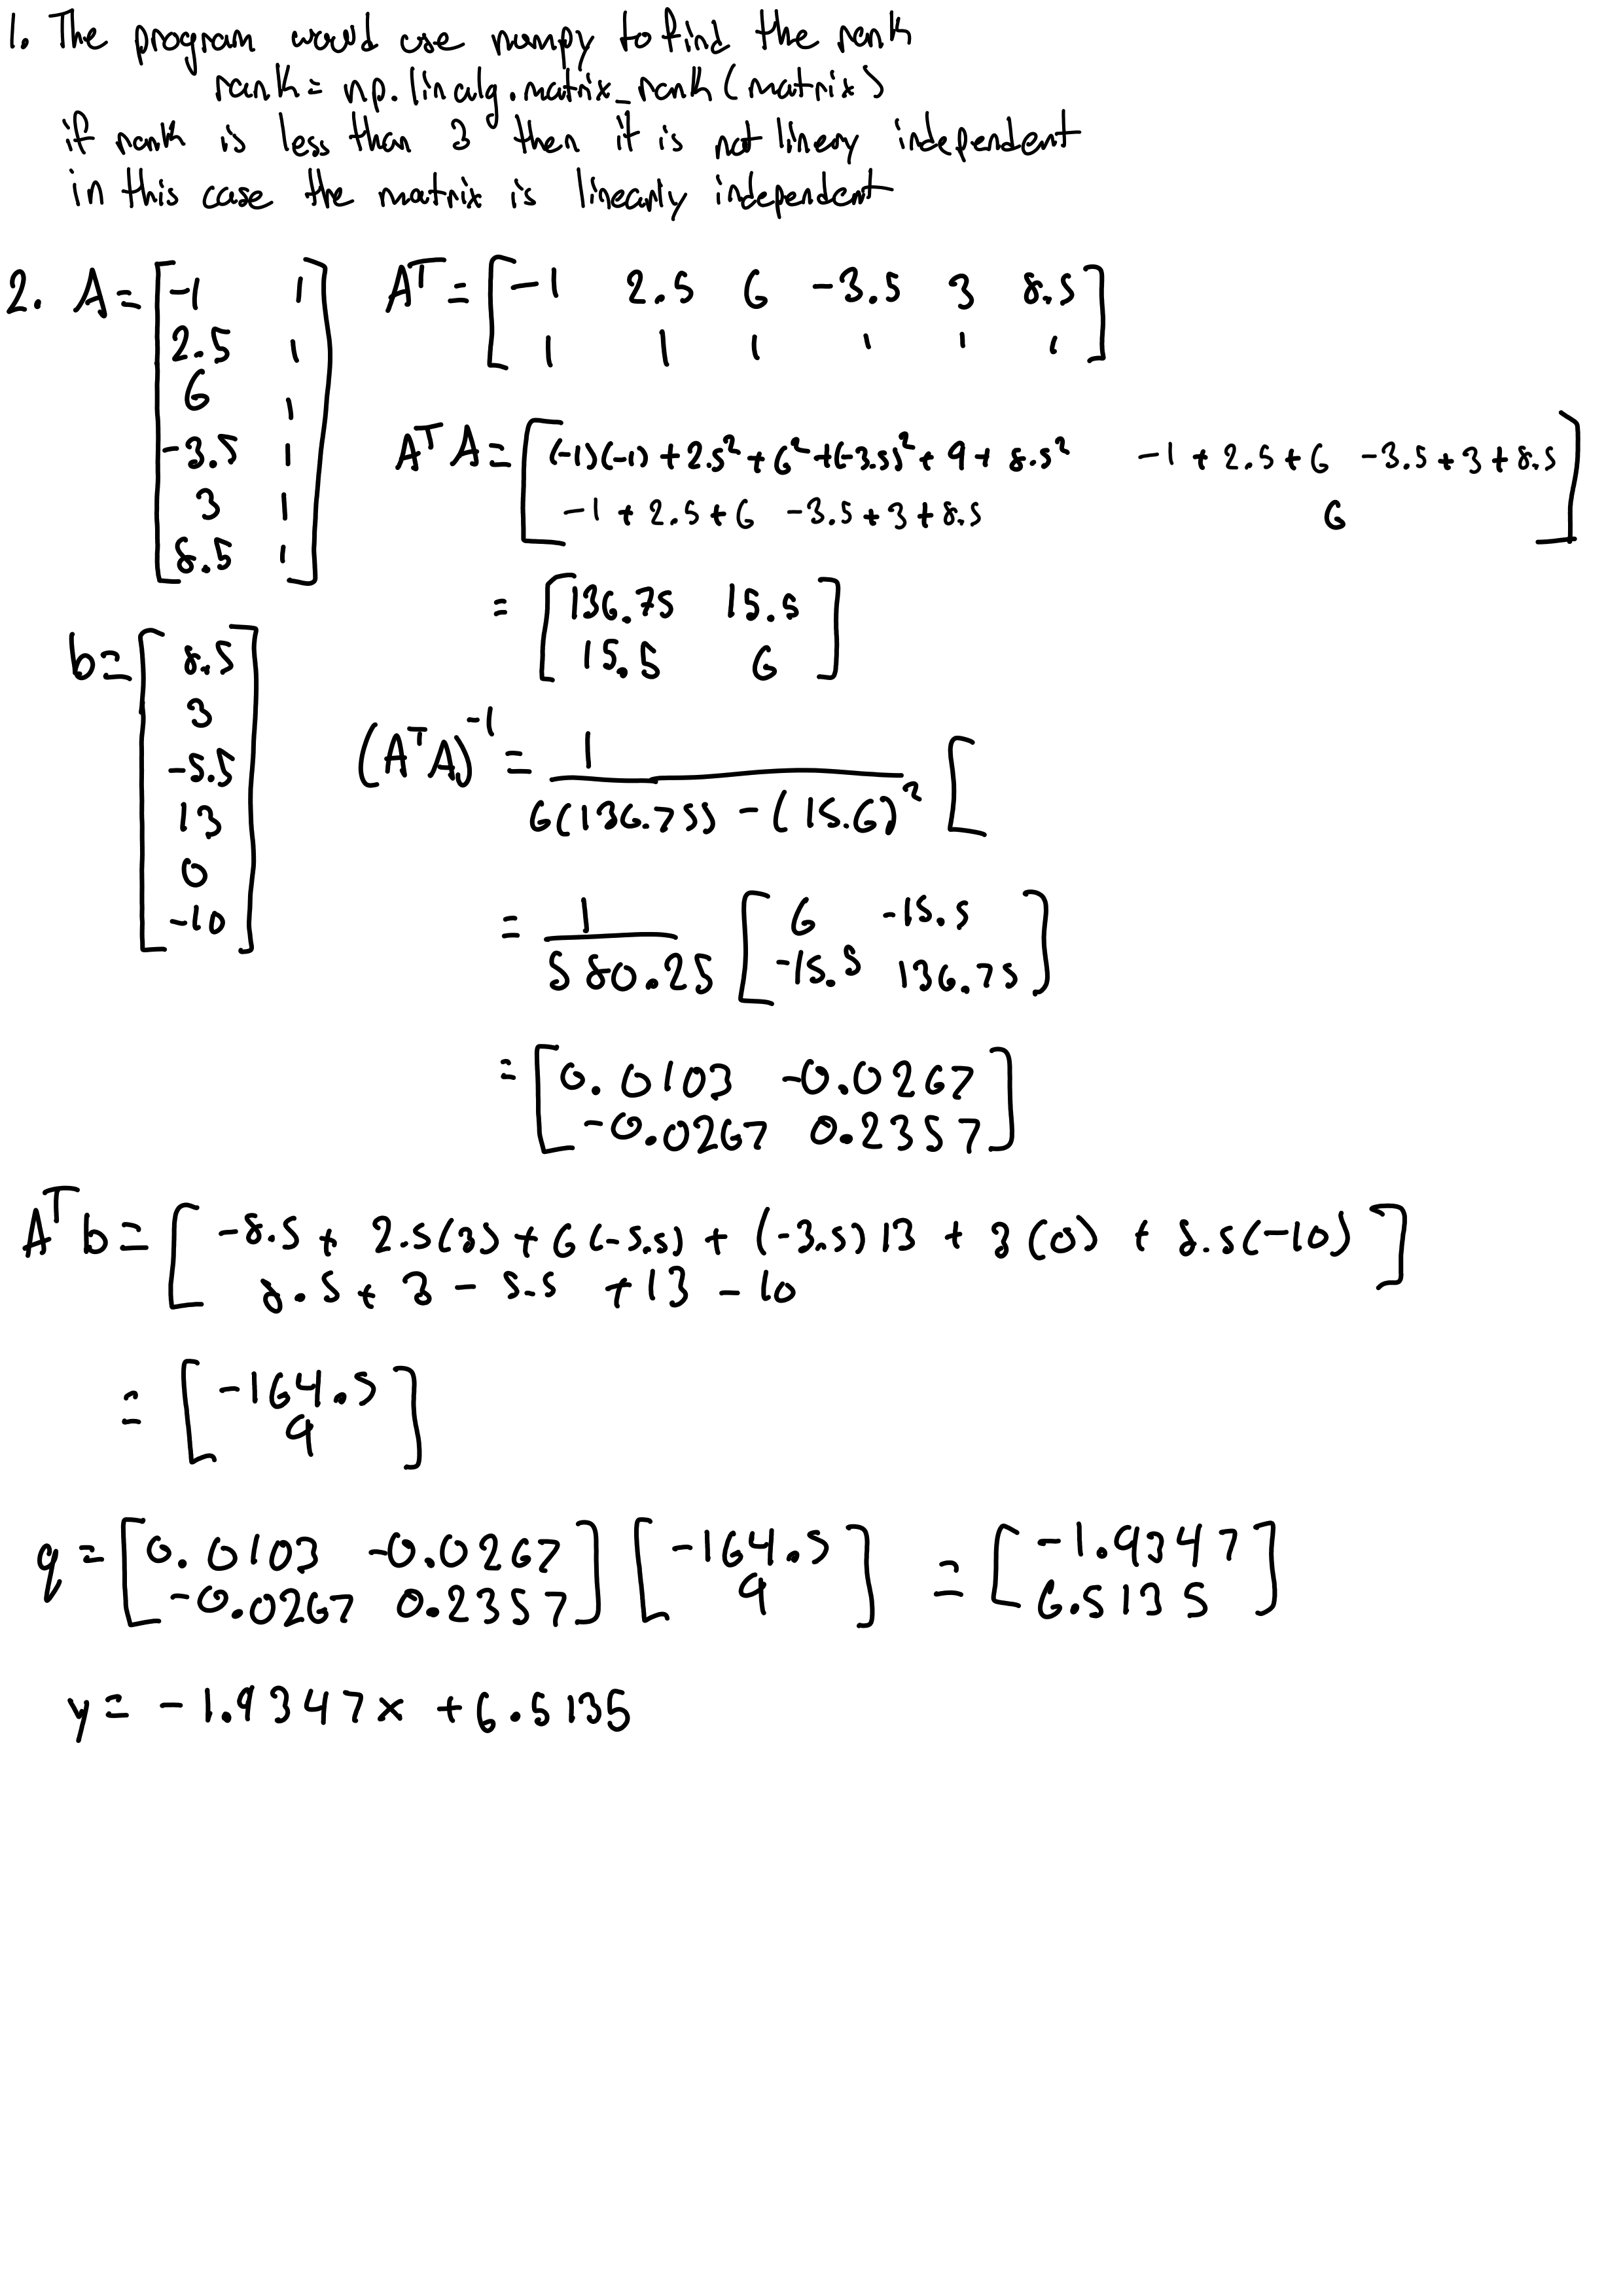 1. The program would use numpy to find the rank
rank = np.linalg.matrix_rank(matrix)
if rank is less than 3 then it is not lineary independent
in this case the matrix is linearly independent
2. A = [-1 1
2.5 1
6 1
-3.5 1
3 1
8.5 1]
Aᵀ = [-1 2.5 6 -3.5 3 8.5
1 1 1 1 1 1]
AᵀA = [(-1)(-1) + 2.5² + 6² + (-3.5)² + 9 + 8.5² -1 + 2.5 + 6 -3.5 + 3 + 8.5
-1 + 2.5 + 6 -3.5 + 3 + 8.5 6]
= [136.75 15.5
15.5 6]
b = [8.5
3
-5.5
13
0
-10]
(AᵀA)⁻¹ = 1 / 6(136.75) - (15.6)² [
= 1 / 580.25 [6 -15.5
-15.5 136.75]
= [0.0103 -0.0267
-0.0267 0.2357]
Aᵀb = [-8.5 + 2.5(3) + 6(-5.5) + (-3.5)13 + 3(0) + 8.5(-10)
8.5 + 3 - 5.5 + 13 - 10]
= [-164.5
9]
q = [0.0103 -0.0267
-0.0267 0.2357] [-164.5
9] = [-1.9347
6.5135]
y = -1.9347x + 6.5135